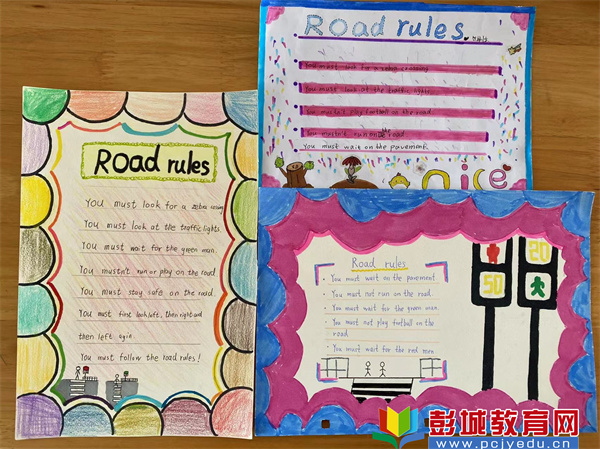 ROAD rules
You must look for a zebra crossing
You must look at the traffic lights.
You must wait for the green man.
You mustn't run or play on the road
You must stay safe on the road.
You must first look left, then right and
then left again.
You must follow the road rules!
Road rules.
You must look for a zebra crossing.
You must look at the traffic lights.
You mustn't play football on the road.
You mustn't run on the road.
You must wait on the pavement.
nice
Road rules
You must wait on the pavement.
You must not run on the road.
You must wait for the green man.
You must not play football on the
road.
You must wait for the red man
20
50
彭城教育网
www.pcjyedu.cn